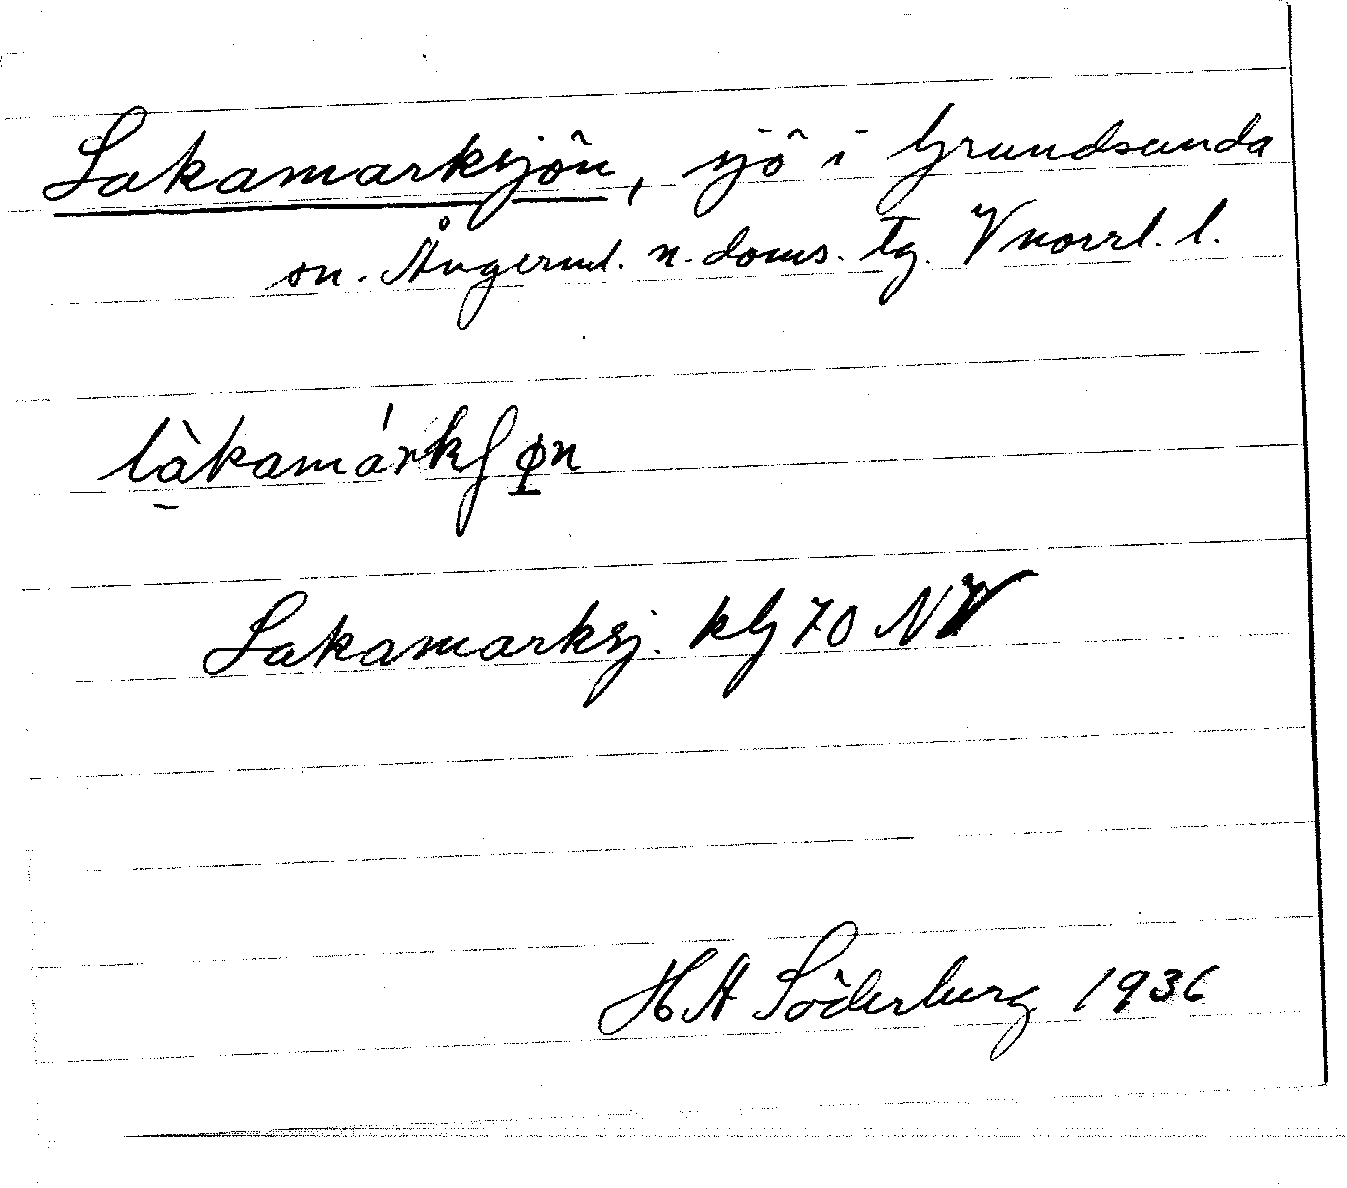 Lakamarksjön, sjö i Grundsunda
sn. Ångerml. n. doms. tg. Vnorrl. l.
làkamárkʃøn
Lakamarksj. kbg 70 NV
H A Söderberg 1936